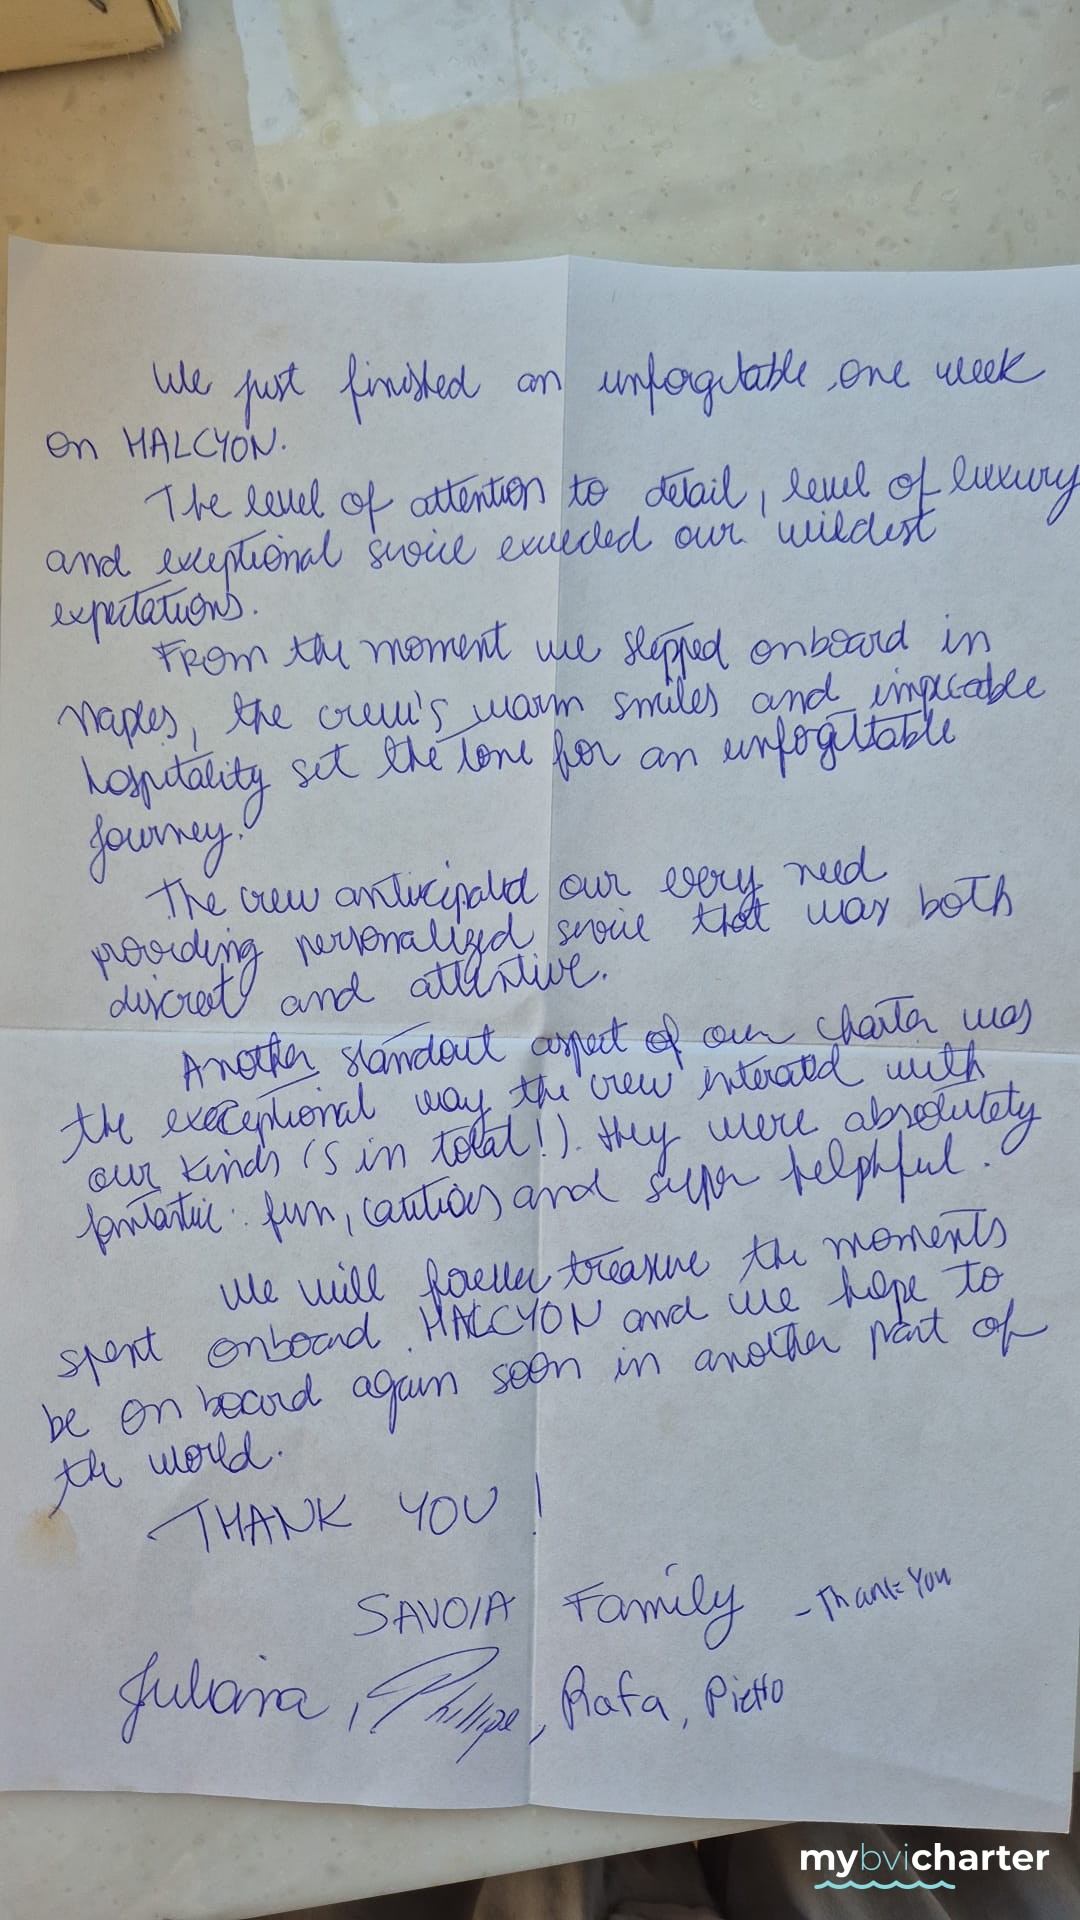 We just finished an unforgetable one week
on HALCYON.
The level of attention to detail, level of luxury
and exceptional service exceeded our wildest
expectations.
From the moment we stepped onboard in
Naples, the crew's warm smiles and impecable
hospitality set the tone for an unforgettable
journey.
The crew anticipated our every need
providing personalized service that was both
discreet and attentive.
Another standout aspect of our charter was
the execeptional way the crew interated with
our kinds (5 in total!). they were absolutety
fantastic: fun, cautios and super helphful.
We will forever treasure the moments
spent onboard HALCYON and we hope to
be on board again soon in another part of
the world.
THANK YOU!
SAVOIA Family - Thank You
Juliana, Phillipe, Rafa, Pietro
mybvicharter